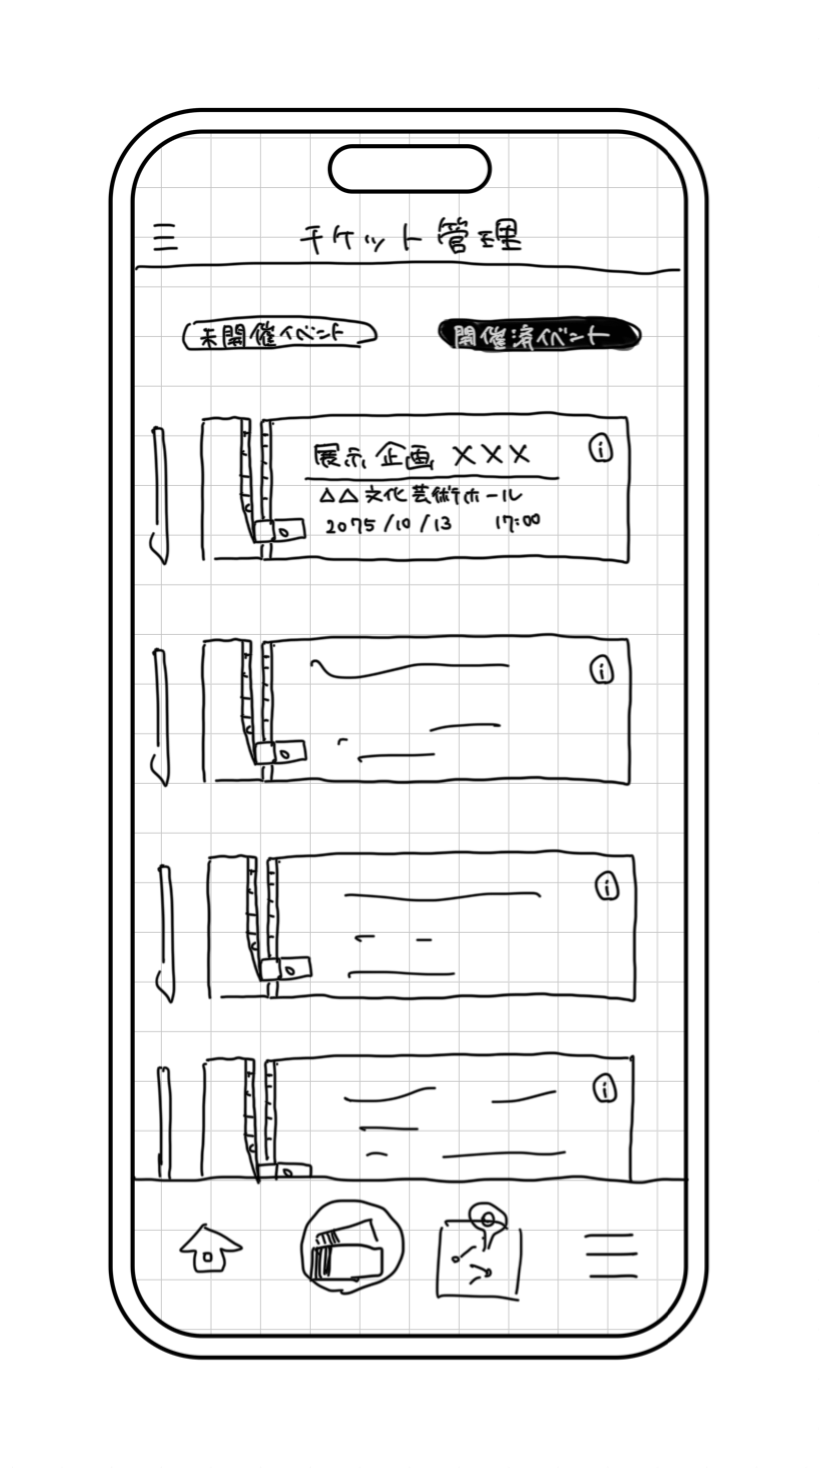 チケット管理
未開催イベント
開催済イベント
展示企画 ×××
i
△△文化芸術ホール
2075/10/13 17:00
i
i
i